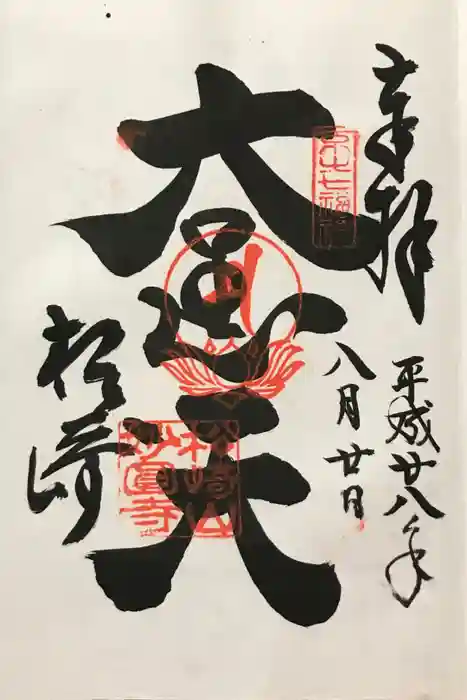 奉拝
平成廿八年
八月廿日
大黒天
松崎
松崎山
妙圓寺